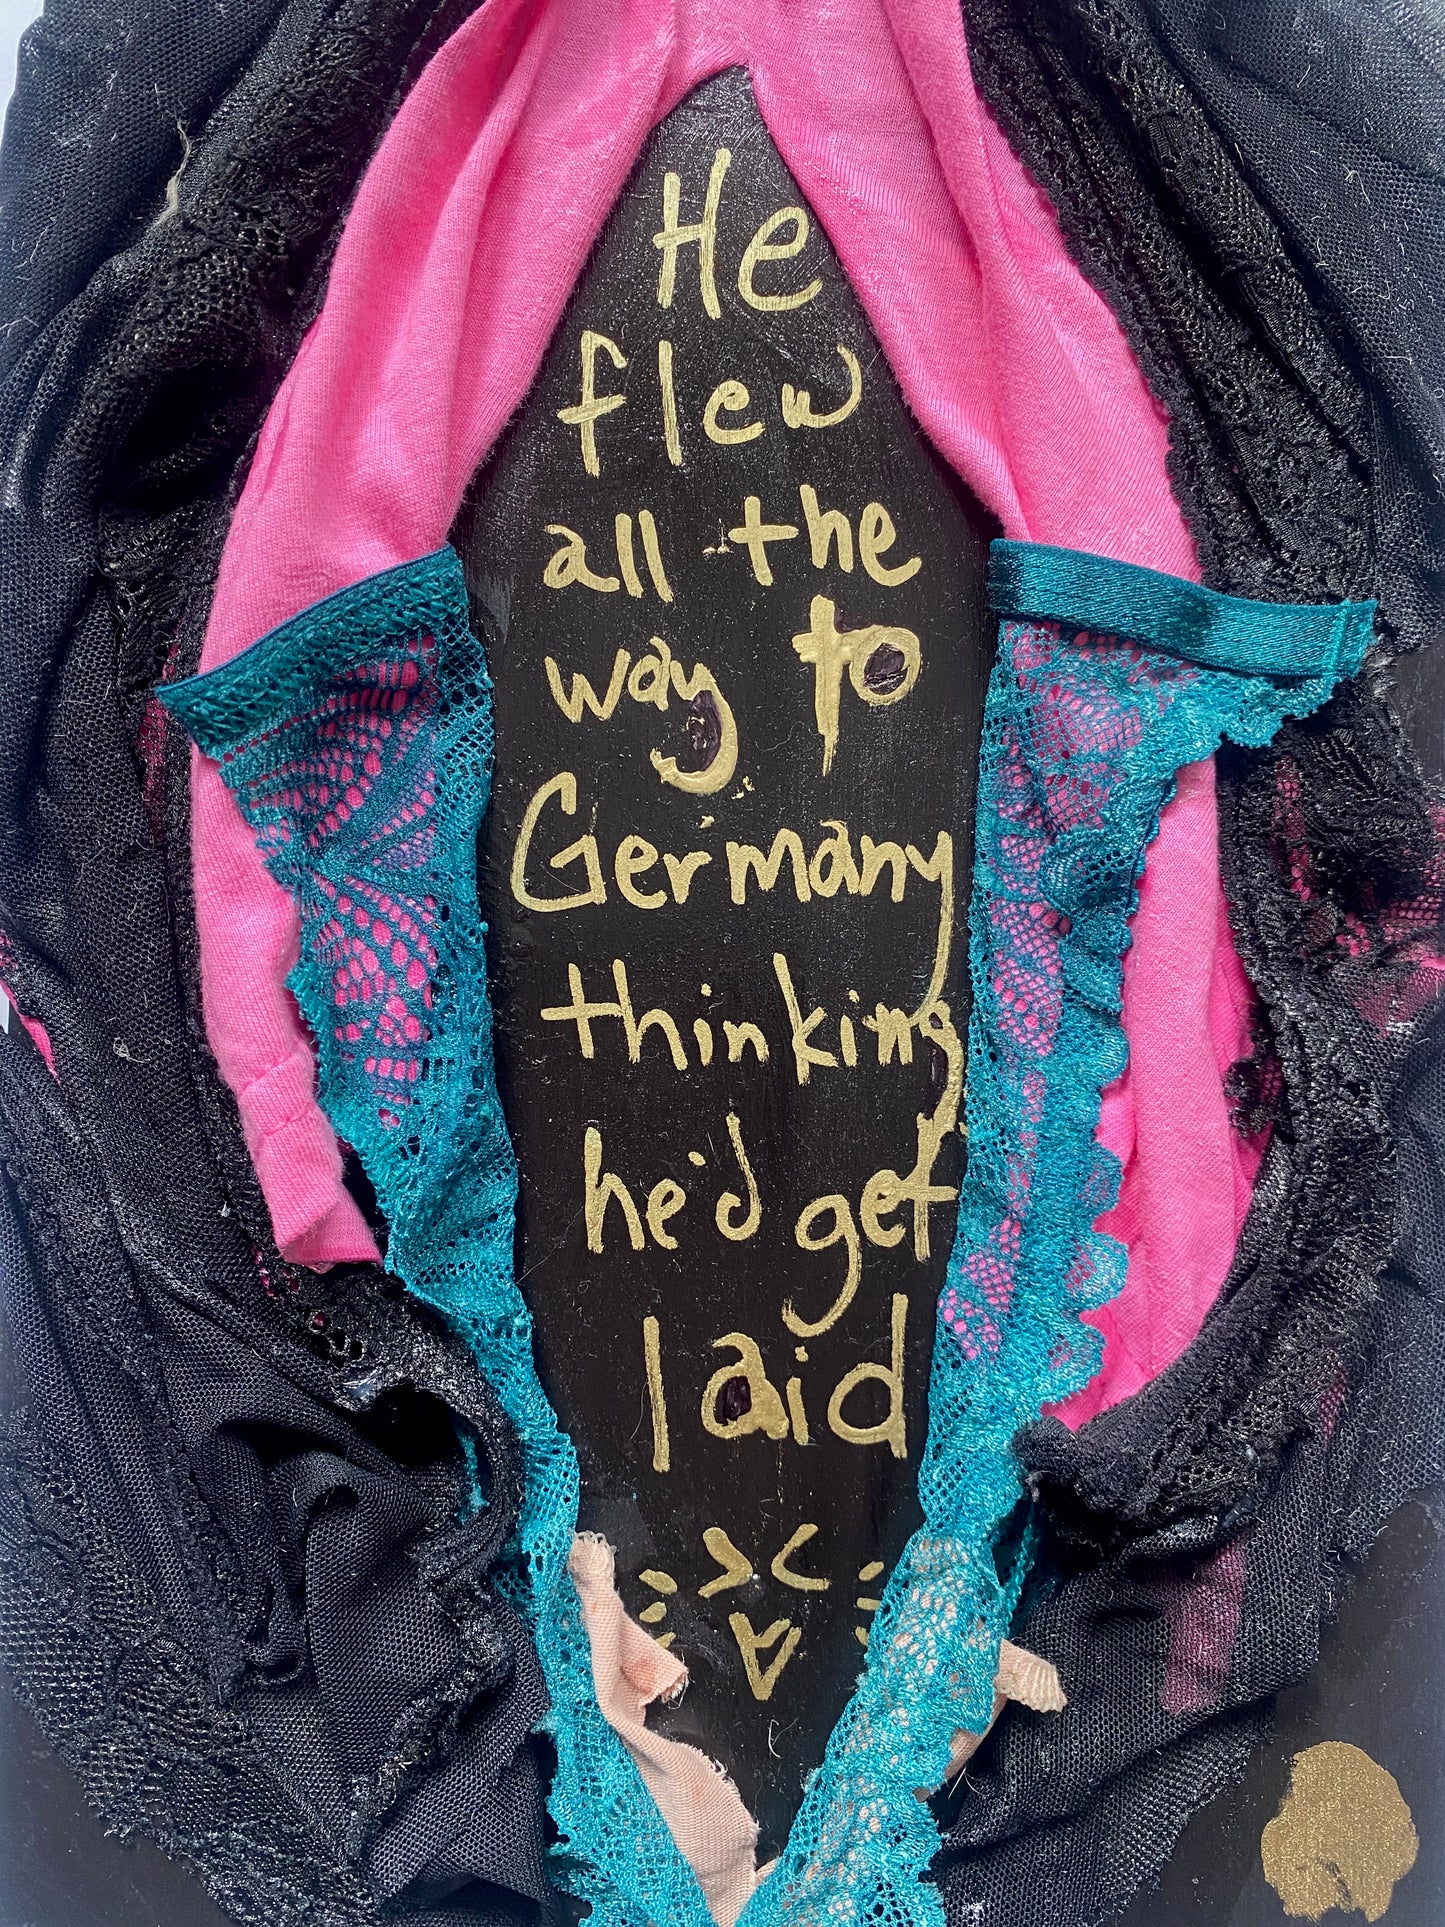 He
flew
all the
way to
Germany
thinking
he'd get
laid